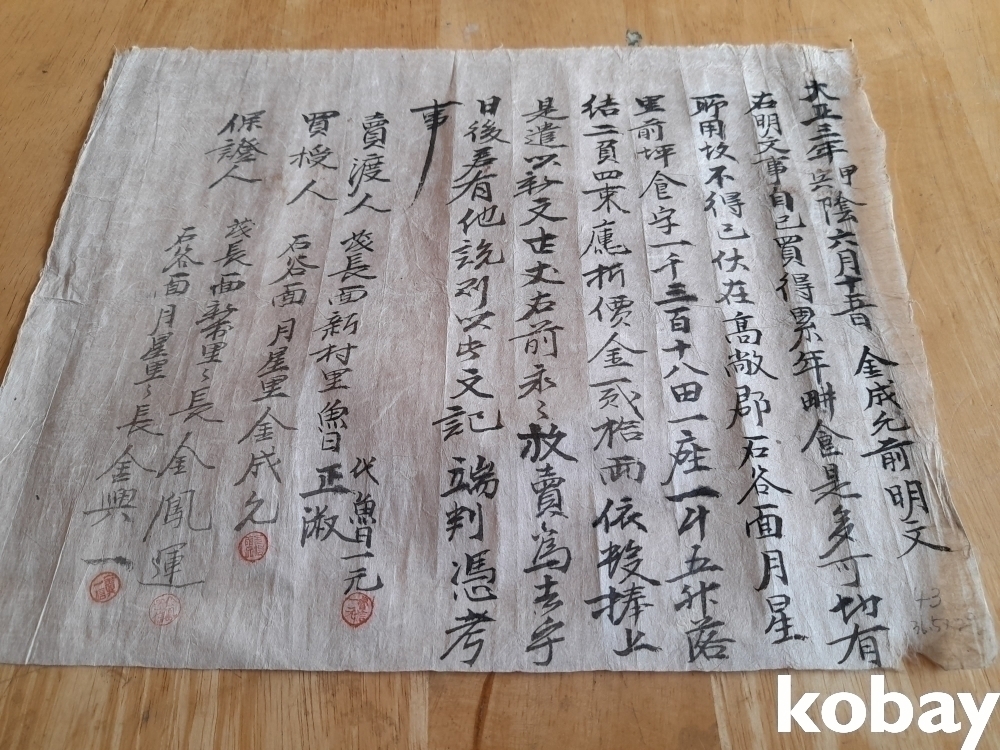 大正三年甲寅陰六月十五日 金成允前明文
右明文事自己買得累年畊食是多可切有
所用故不得已伏在高敞郡石谷面月星
里前坪食字一千三百十八田一座一斗五升落
結二負四束廤折價金貳拾兩依數捧上
是遣以新文壱丈右前永〻放賣爲去乎
日後若有他説則以此文記 端判憑考
事
賣渡人 茂長面新村里 魯正淑
代魯一元
買授人 石谷面月星里金成允
保證人 茂長面新村里〻長 金鳳運
石谷面月星里〻長 金興一
43
kobay